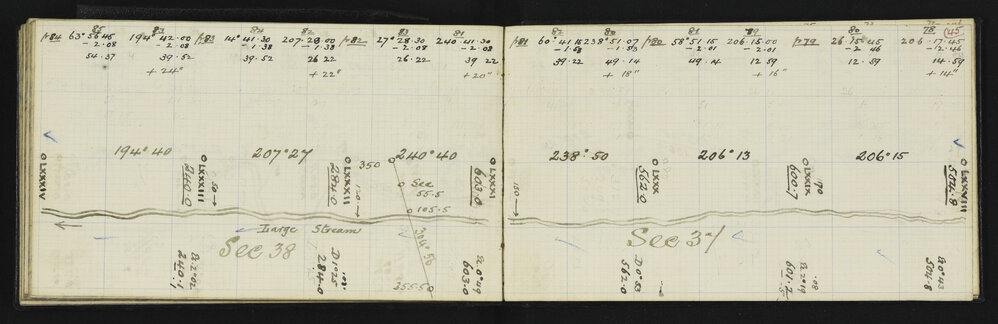 85 83 84 82 83 81
p84 63° 56 45 194° 42.00 p83 14° 41.30 207.28.00 p82 27° 28.30 240° 41.30
- 2.08 - 2.08 - 1.38 - 1.38 - 2.08 - 2.08
54.37 39.52 39.52 26 22 26.22 39 22
+ 24" + 22" + 20"
82 80 81 79 80 78
p81 60° 41 15 238° 51.07 p80 58° 51.15 206.15.00 p79 26 15 45 206.17.45
- 1.53 - 1.53 - 2.01 - 2.01 - 2 46 - 12.46
39.22 49.14 49.14 12 59 12.59 14.59
+ 18" + 16" + 14"
45
194° 40 207° 27 350 240° 40
238° 50 206° 13 206° 15
O LXXXIV
O LXXXIII
240.0
50
O LXXXII
284.0
110
O LXXXI
603.0
150
O LXXX
562.0
O LXXIX
600.7
190
O LXXVIII
504.8
See
55.5
105.5
Large Stream
304° 50
355.50
Sec 38
Sec 37
R 2°02
240.1
D 1°25
284.0
R 0°09
603.0
D 0°53
562.0
R 2°19
601.2
.08
R 0°43
504.8